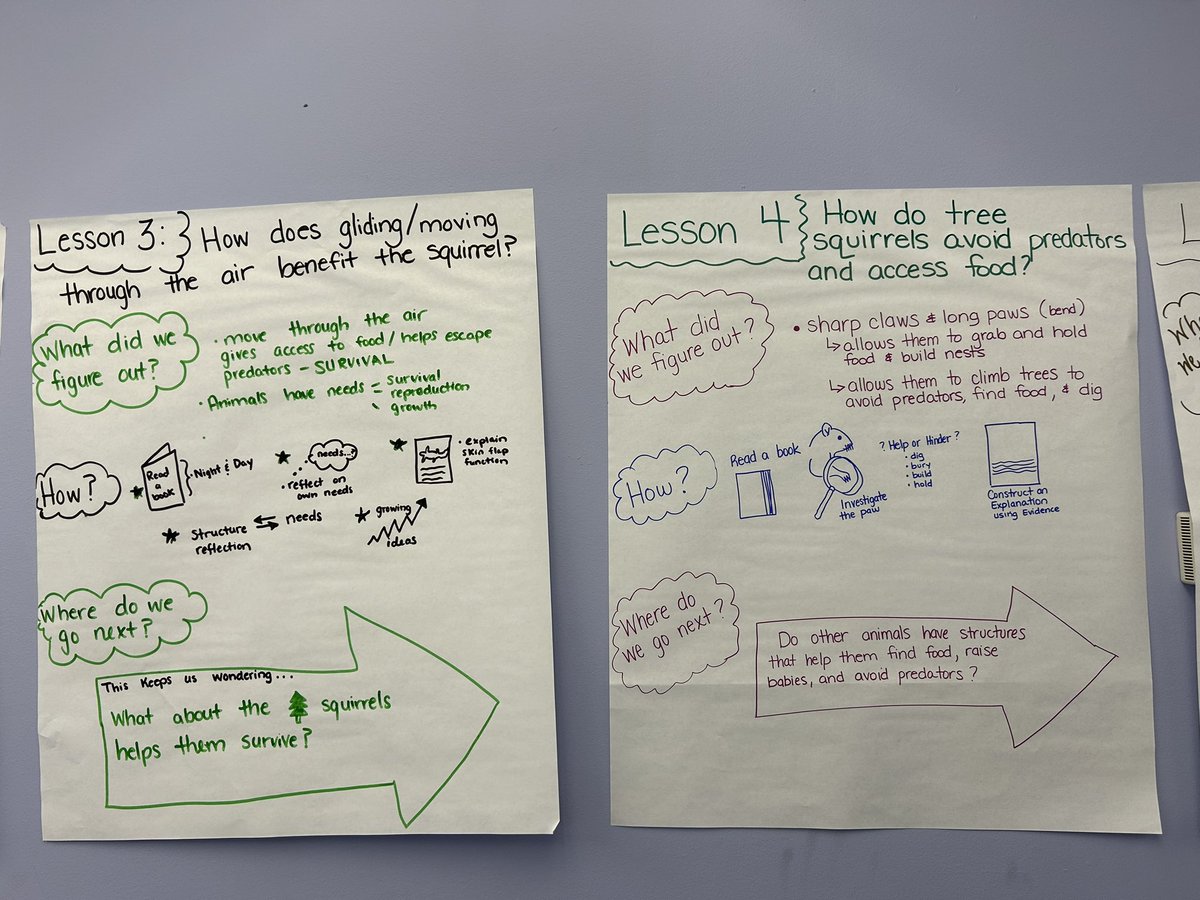 Lesson 3:
How does gliding/moving
through the air benefit the squirrel?
What did we
figure out?
• move through the air
gives access to food/helps escape
predators - SURVIVAL
• Animals have needs = survival
reproduction
growth
How?
Read
a
book
• Night & Day
needs...?
• reflect on
own needs
• explain
skin flap
function
Structure needs
reflection
growing
ideas
Where do we
go next?
This keeps us wondering...
What about the squirrels
helps them survive?
Lesson 4
How do tree
squirrels avoid predators
and access food?
What did
we figure out?
• sharp claws & long paws (bend)
↳ allows them to grab and hold
food & build nests
↳ allows them to climb trees to
avoid predators, find food, & dig
How?
Read a book
Investigate
the paw
? Help or Hinder?
• dig
• bury
• build
• hold
Construct an
Explanation
using Evidence
Where do
we go next?
Do other animals have structures
that help them find food, raise
babies, and avoid predators?
L